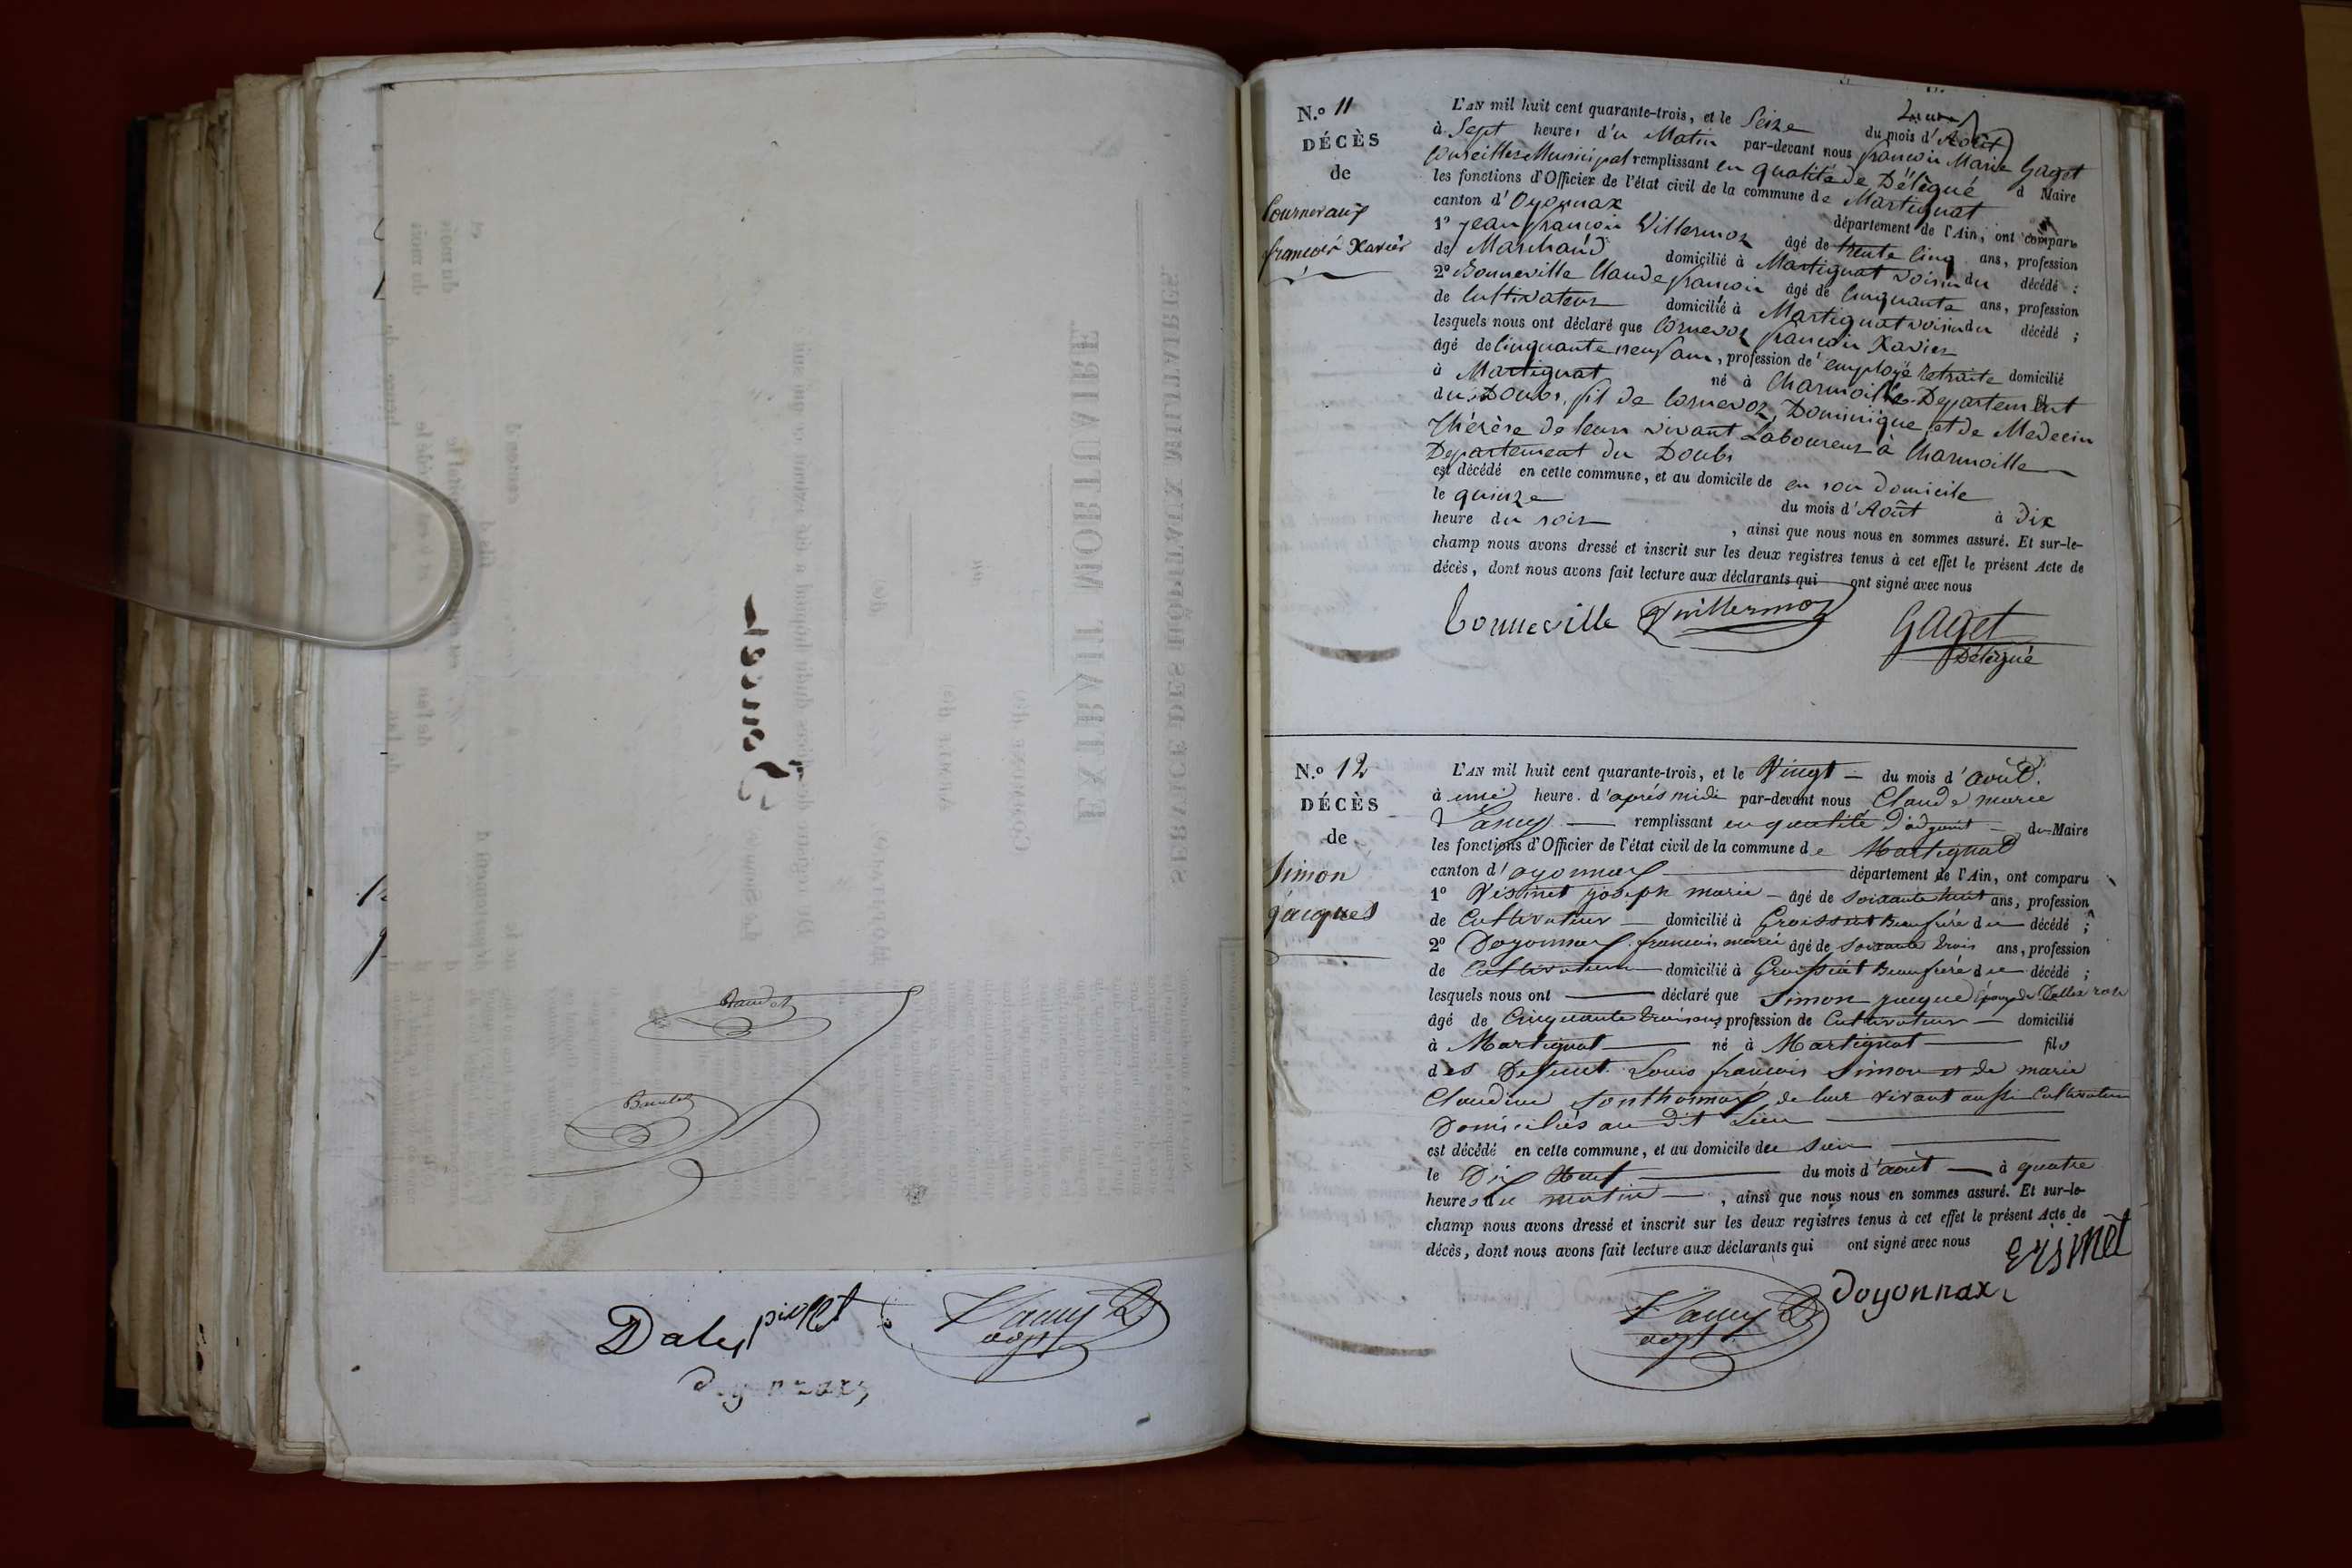 Baudot
Daley piollet
N.º 11
DÉCÈS
de
Cournevaux
françois Xavier
L'AN mil huit cent quarante-trois, et le Seize du mois d'Août
à Sept heures d'u Matin par-devant nous françois Marie Gaget
Conseiller Municipal remplissant en qualité de Délégué d Maire
les fonctions d'Officier de l'état civil de la commune de Martignat
canton d'Oyonnax département de l'Ain, ont comparu
1º Jean françois Villermoz âgé de trente Cinq ans, profession
de Marchand domicilié à Martignat voisin du décédé ;
2º Bonneville Claude françois âgé de Cinquante ans, profession
de Cultivateur domicilié à Martignat voisin du décédé ;
lesquels nous ont déclaré que Cornevoz françois Xavier
âgé de Cinquante neuf ans, profession de employé retraite domicilié
à Martignat né à Charmoille Departement fil
du Doubs, fils de Cornevoz Dominique et de Medecin
Thérèse de leurs vivant Laboureur à Charmoille
Departement du Doubs
est décédé en cette commune, et au domicile de en son domicile
le quinze du mois d'Août à dix
heure du soir , ainsi que nous nous en sommes assuré. Et sur-le-
champ nous avons dressé et inscrit sur les deux registres tenus à cet effet le présent Acte de
décès, dont nous avons fait lecture aux déclarants qui ont signé avec nous
Bonneville Vuillermoz Gaget
Délégué
N.º 12
DÉCÈS
de
Simon
jacques
L'AN mil huit cent quarante-trois, et le Vingt du mois d'août.
à une heure. d'après midi par-devant nous Claude marie
remplissant en qualité d'adjoint du Maire
les fonctions d'Officier de l'état civil de la commune de Martignat
canton d'oyonnax département de l'Ain, ont comparu
1º Vésinet joseph marie âgé de soixante huit ans, profession
de Cultivateur domicilié à Groissiat Beaufrère du décédé ;
2º Doyonnax françois marie âgé de soixante trois ans, profession
de Cultivateur domicilié à Groissiat Beaufrère du décédé ;
lesquels nous ont déclaré que Simon jacque époux de
âgé de Cinquante trois ans profession de Cultivateur domicilié
à Martignat né à Martignat fils
des Defunt Louis françois Simon et de marie
Claudine Sonthonnax de leur vivant aussi Cultivateur
Domiciliés au dit Lieu
est décédé en cette commune, et au domicile du Sien
le Dix Huit du mois d'août à quatre
heures du matin , ainsi que nous nous en sommes assuré. Et sur-le-
champ nous avons dressé et inscrit sur les deux registres tenus à cet effet le présent Acte de
décès, dont nous avons fait lecture aux déclarants qui ont signé avec nous
Doyonnax